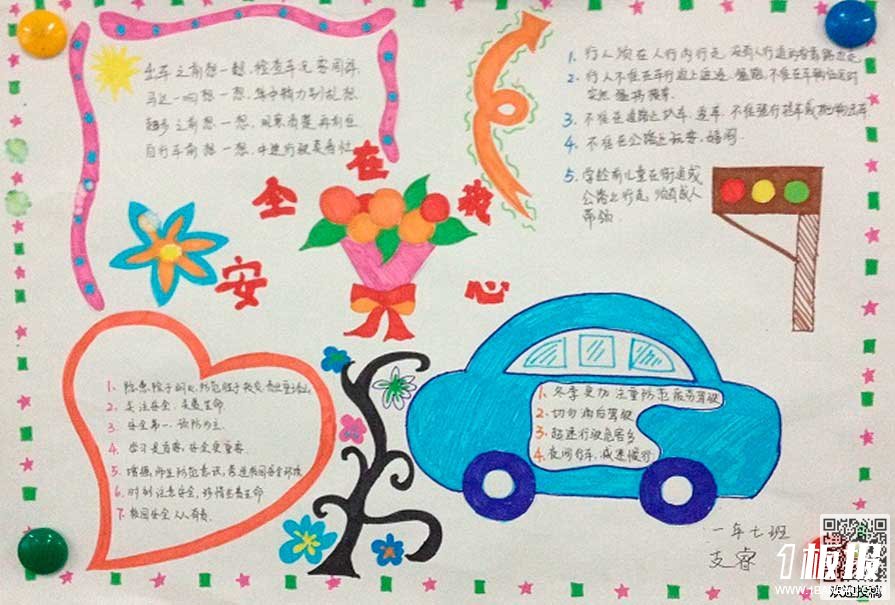 出车之前想一想,检查车况要周详.
马达一响想一想,集中精力别乱想.
起步之前想一想,观察清楚再前行.
自行车前想一想,中速行驶莫着忙
安全在我心
1. 行人须在人行内行走,没有人行道的靠路边走.
2. 行人不准在车行道上追逐、猛跑,不准在车辆临近时
突然猛拐横穿.
3. 不准在道路上扒车、追车,不准强行拦车或抛物击车
4. 不准在公路上玩耍、嬉闹.
5. 学龄前儿童在街道或
公路上行走,须有成人
带领
1. 隐患险于明火,防范胜于救灾,责任重于泰山.
2. 关注安全,关爱生命
3. 安全第一,预防为主.
4. 学习是首要,安全更重要.
5. 增强师生防范意识,营造校园安全环境
6. 时刻注意安全,珍惜生命
7. 校园安全人人有责.
1. 冬季更加注重防范疲劳驾驶
2. 切勿酒后驾驶
3. 超速行驶危害多
4. 夜间行车,减速慢行
一年七班
支睿
1板报
欢迎投稿